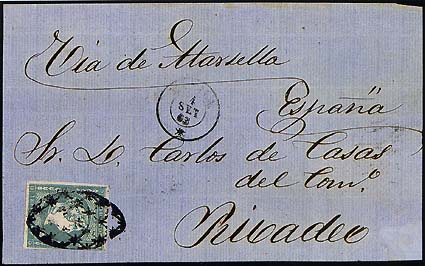 Via de Marsella
4
SET
63
España
Sr. D. Carlos de Casas
del Com.o
Rivadeo